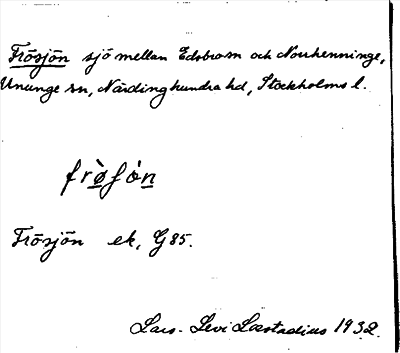 Frösjön sjö mellan Edsbrom och Norrhenninge,
Ununge sn, Närdinghundra hd, Stockholms l.
frø̀ʃòn
Frösjön ek, G85.
Lars-Levi Læstadius 1932.